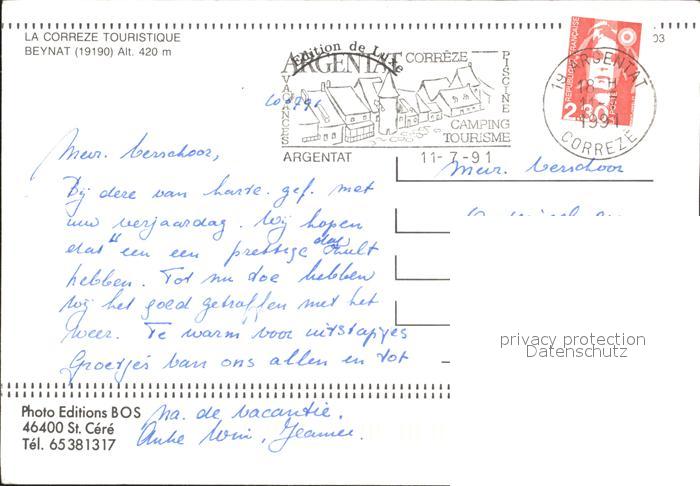 LA CORREZE TOURISTIQUE
BEYNAT (19190) Alt. 420 m
03
Edition de Luxe
ARGENTAT CORRÈZE
VACANCES
PISCINE
CAMPING
TOURISME
ARGENTAT
11-7-91
19 ARGENTAT
18 H
1991
CORREZE
REPUBLIQUE FRANÇAISE
2.30
10-7-91
Mevr. Verschoor,
Bij deze van harte gef. met
uw verjaardag. Wij hopen
dat U een een prettige dag zult
hebben. Tot nu toe hebben
wij het goed getroffen met het
weer. Te warm voor uitstapjes
Groetjes van ons allen en tot
na de vacantie.
Anke Wim, Jeannet
Mevr. Verschoor
Photo Editions BOS
46400 St. Céré
Tél. 65381317
privacy protection
Datenschutz